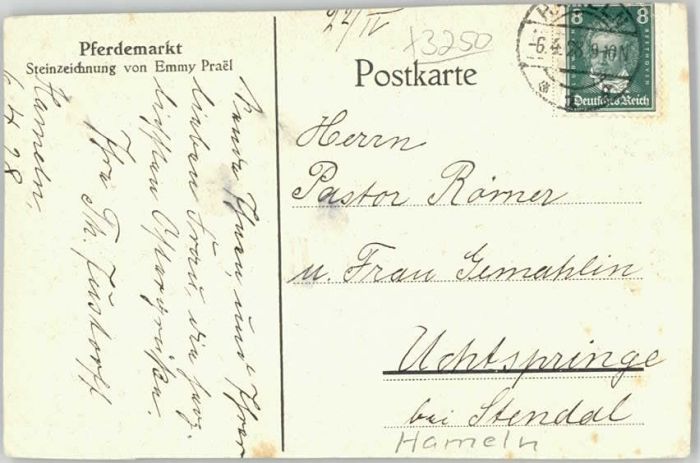 Pferdemarkt
Steinzeichnung von Emmy Praël
Hameln,
6.4.28
Sende Ihnen, und Ihrer
lieben Frau, die herz-
lichsten Ostergrüße.
Ihre Th.
22/IV
X3250
Postkarte
HAMELN
-6.4.28. 9-10N
8 8
BEETHOVEN
Deutsches Reich
Herrn
Pastor Römer
u. Frau Gemahlin
Uchtspringe
bei Stendal
Hameln